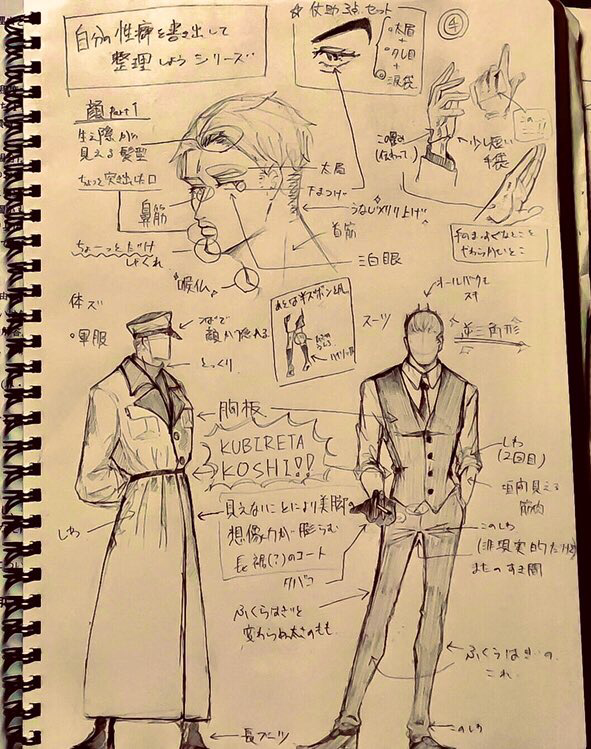 自分の性癖を書き出して
整理しようシリーズ
仗助3点セット
太眉
+
タレ目
+
涙袋
④
顔 Part 1
生え際が
見える髪型
ちょっと突き出た口
鼻筋
ちょこーっとだけ
しゃくれ
喉仏
太眉
下まつげ
うなじメリリ上げ
首筋
三白眼
少し短い
手袋
体ズ
軍服
つばで
顔が隠れる
とっくり
スーツ
オールバックも
スキ
逆三角形
胸板
KUBIRETA
KOSHI!!
しわ
(2回目)
垣間見える
筋肉
見えないことにより美脚の
想像力が膨らむ
長裾(?)のコート
しわ
タバコ
このしわ
(非現実的だけど)
またのすき間
ふくらはぎと
変わらぬ太さのもも
ふくらはぎの
これ
長ブーツ
このしわ